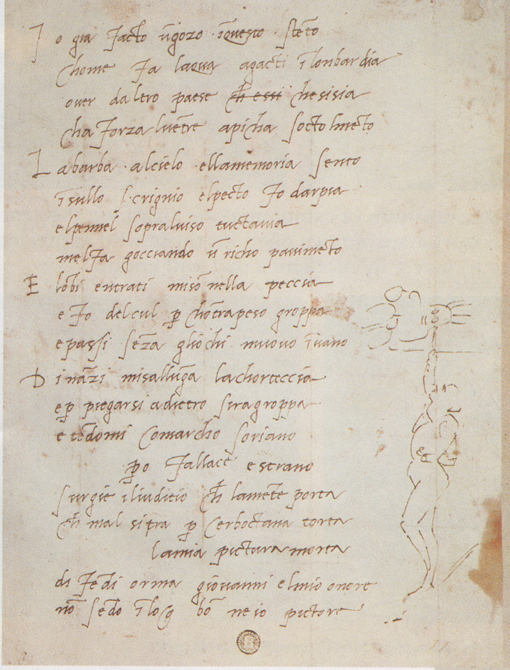 I o gia facto ūgozo īquesto stēto
chome fa laqua agacti ī lonbardia
over daltro paese ch̄ essi chesisia
cha forza lvētre apicha socto lmēto
L a barba alcielo ellamemoria sento
īsullo scrignio elpecto fo darpia
elpennel sopraluiso tuctavia
melfa gocciando ū richo pauimēto
E lōbi entrati misō nella peccia
e fo delcul p̱ chōtrapeso groppa
e passi sēza gliochi muovo īuano
D ināzi misallūga lachorteccia
e p̱ piegarsi adietro siragroppa
e tēdomi comarcho soriano
p̱o fallace e strano
surgie iliuditio ch̄ lamēte porta
ch̄ mal sitra p̱ cerboctana torta
lamia pictura morta
di fēdi orma giovanni elmio onore
nō sēdo īlog bō ne io pictore